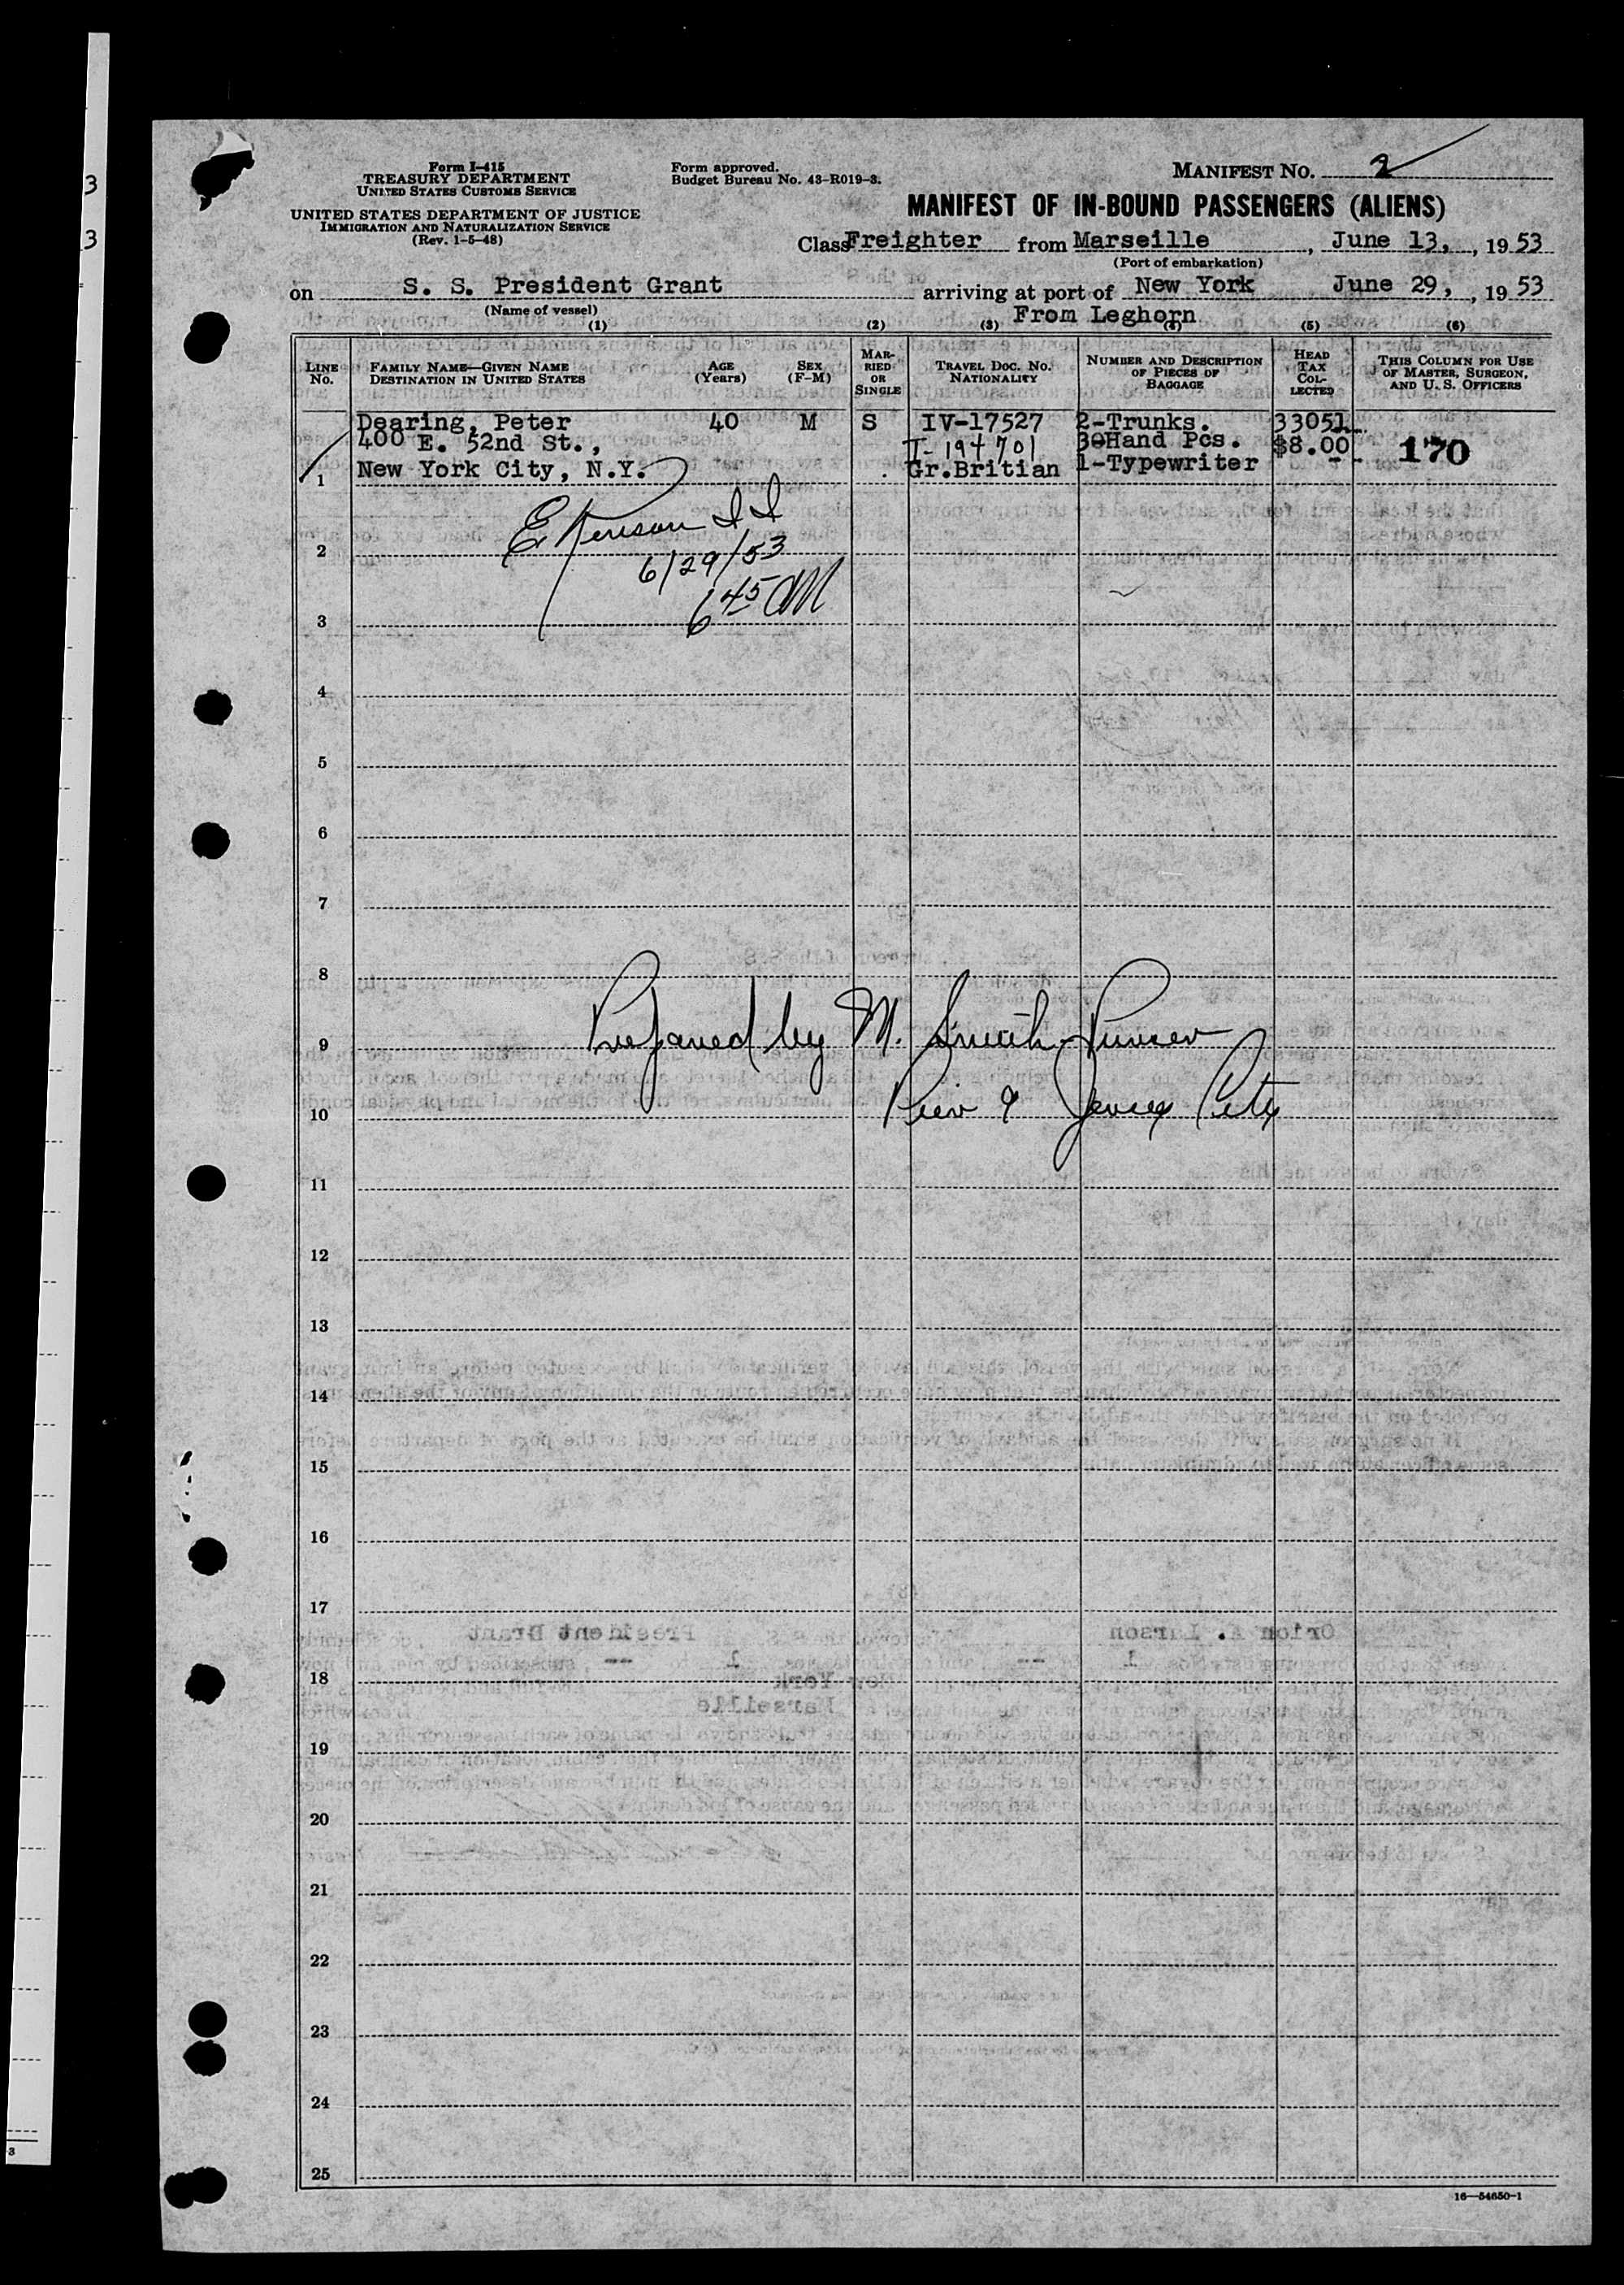 3
3
Form I-415
TREASURY DEPARTMENT
UNITED STATES CUSTOMS SERVICE
UNITED STATES DEPARTMENT OF JUSTICE
IMMIGRATION AND NATURALIZATION SERVICE
(Rev. 1-5-48)
Form approved.
Budget Bureau No. 43-R019-3.
MANIFEST NO. 2
MANIFEST OF IN-BOUND PASSENGERS (ALIENS)
Class Freighter from Marseille, June 13, , 1953
(Port of embarkation)
on S. S. President Grant arriving at port of New York June 29, , 1953
(Name of vessel)
From Leghorn
(1) (2) (3) (4) (5) (6)
LINE No. FAMILY NAME—GIVEN NAME DESTINATION IN UNITED STATES AGE (Years) SEX (F-M) MARRIED OR SINGLE TRAVEL DOC. NO. NATIONALITY NUMBER AND DESCRIPTION OF PIECES OF BAGGAGE HEAD TAX COLLECTED THIS COLUMN FOR USE OF MASTER, SURGEON, AND U. S. OFFICERS
Dearing, Peter 40 M S IV-17527 2-Trunks. 33051
400 E. 52nd St., I-194701 Hand Pcs. $8.00 170
1 New York City, N.Y. Gr.Britian 1-Typewriter
2
6/29/53
3 6 45 AM
4
5
6
7
8
9 Prepared by M. Smith-Purser
10 Pier 9 Jersey City
11
12
13
14
15
16
17
18
19
20
21
22
23
24
25
16—54650-1
3